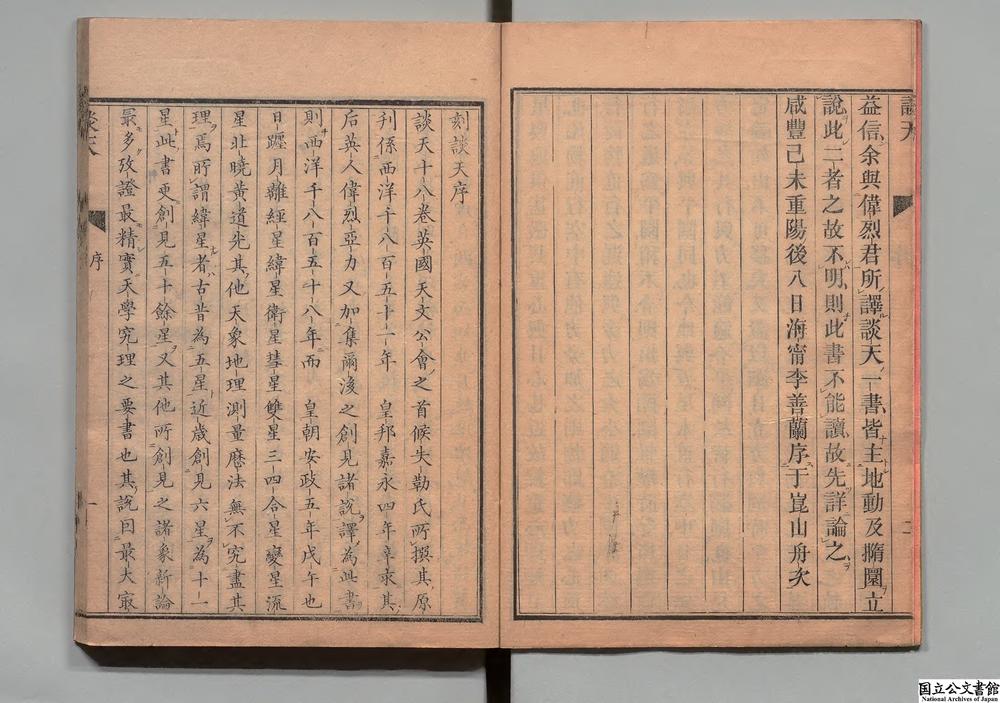 談天
益信余與偉烈君所譯談天一書皆主地動及撱圜立
說此二者之故不明則此書不能讀故先詳論之
咸豐己未重陽後八日海甯李善蘭序于崑山舟次
二
刻談天序
談天十八卷英國天文公會之首候失勒氏所撰其原
刊係西洋千八百五十一年　皇邦嘉永四年辛亥其
后英人偉烈亞力又加集爾後之創見諸說譯為此書
則西洋千八百五十八年而　皇朝安政五年戊午也
日躔月離經星緯星衛星彗星雙星三四合星變星流
星北曉黃道光其他天象地理測量曆法無不究盡其
理焉所謂緯星者古昔為五星近歲創見六星為十一
星此書更創見五十餘星又其他所創見之諸象新論
最多攷證最精實天學究理之要書也其說曰最大最
談天
序
一
国立公文書館
National Archives of Japan